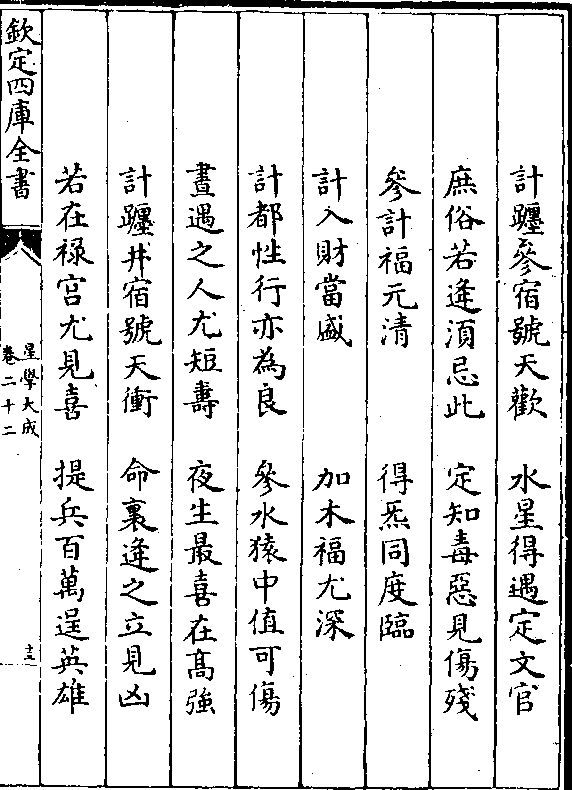 計躔參宿號天歡　水星得遇定文官
庶俗若逄湏忌此　定知毒惡見傷殘
參計福元清　得炁同度臨
計入財當盛　加木福尤深
計都性行亦為良　參水猿中值可傷
晝遇之人尤短壽　夜生最喜在髙強
計躔井宿號天衝　命裏逄之立見凶
若在祿宫尤見喜　提兵百萬逞英雄
欽定四庫全書
星學大成
卷二十二
十三